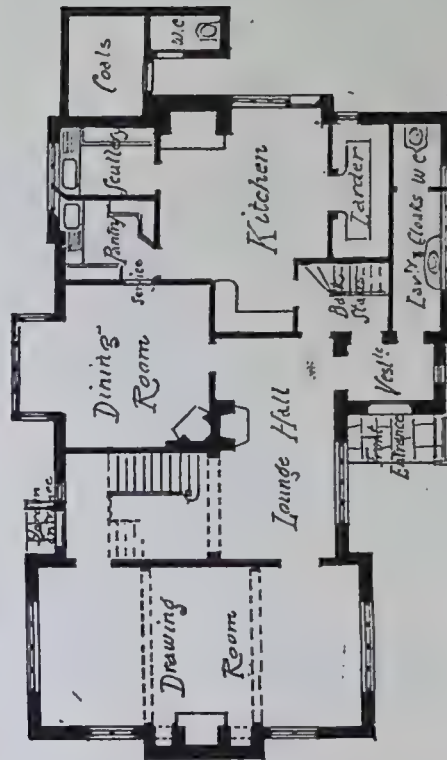 Coals
W.C
Scullery
Pantry
Service
Kitchen
Larder
Lav'y Cloaks W C
Back
Stairs
Vest'le
Dining
Room
Lounge Hall
Front
Entrance
Garden
Entrance
Drawing
Room